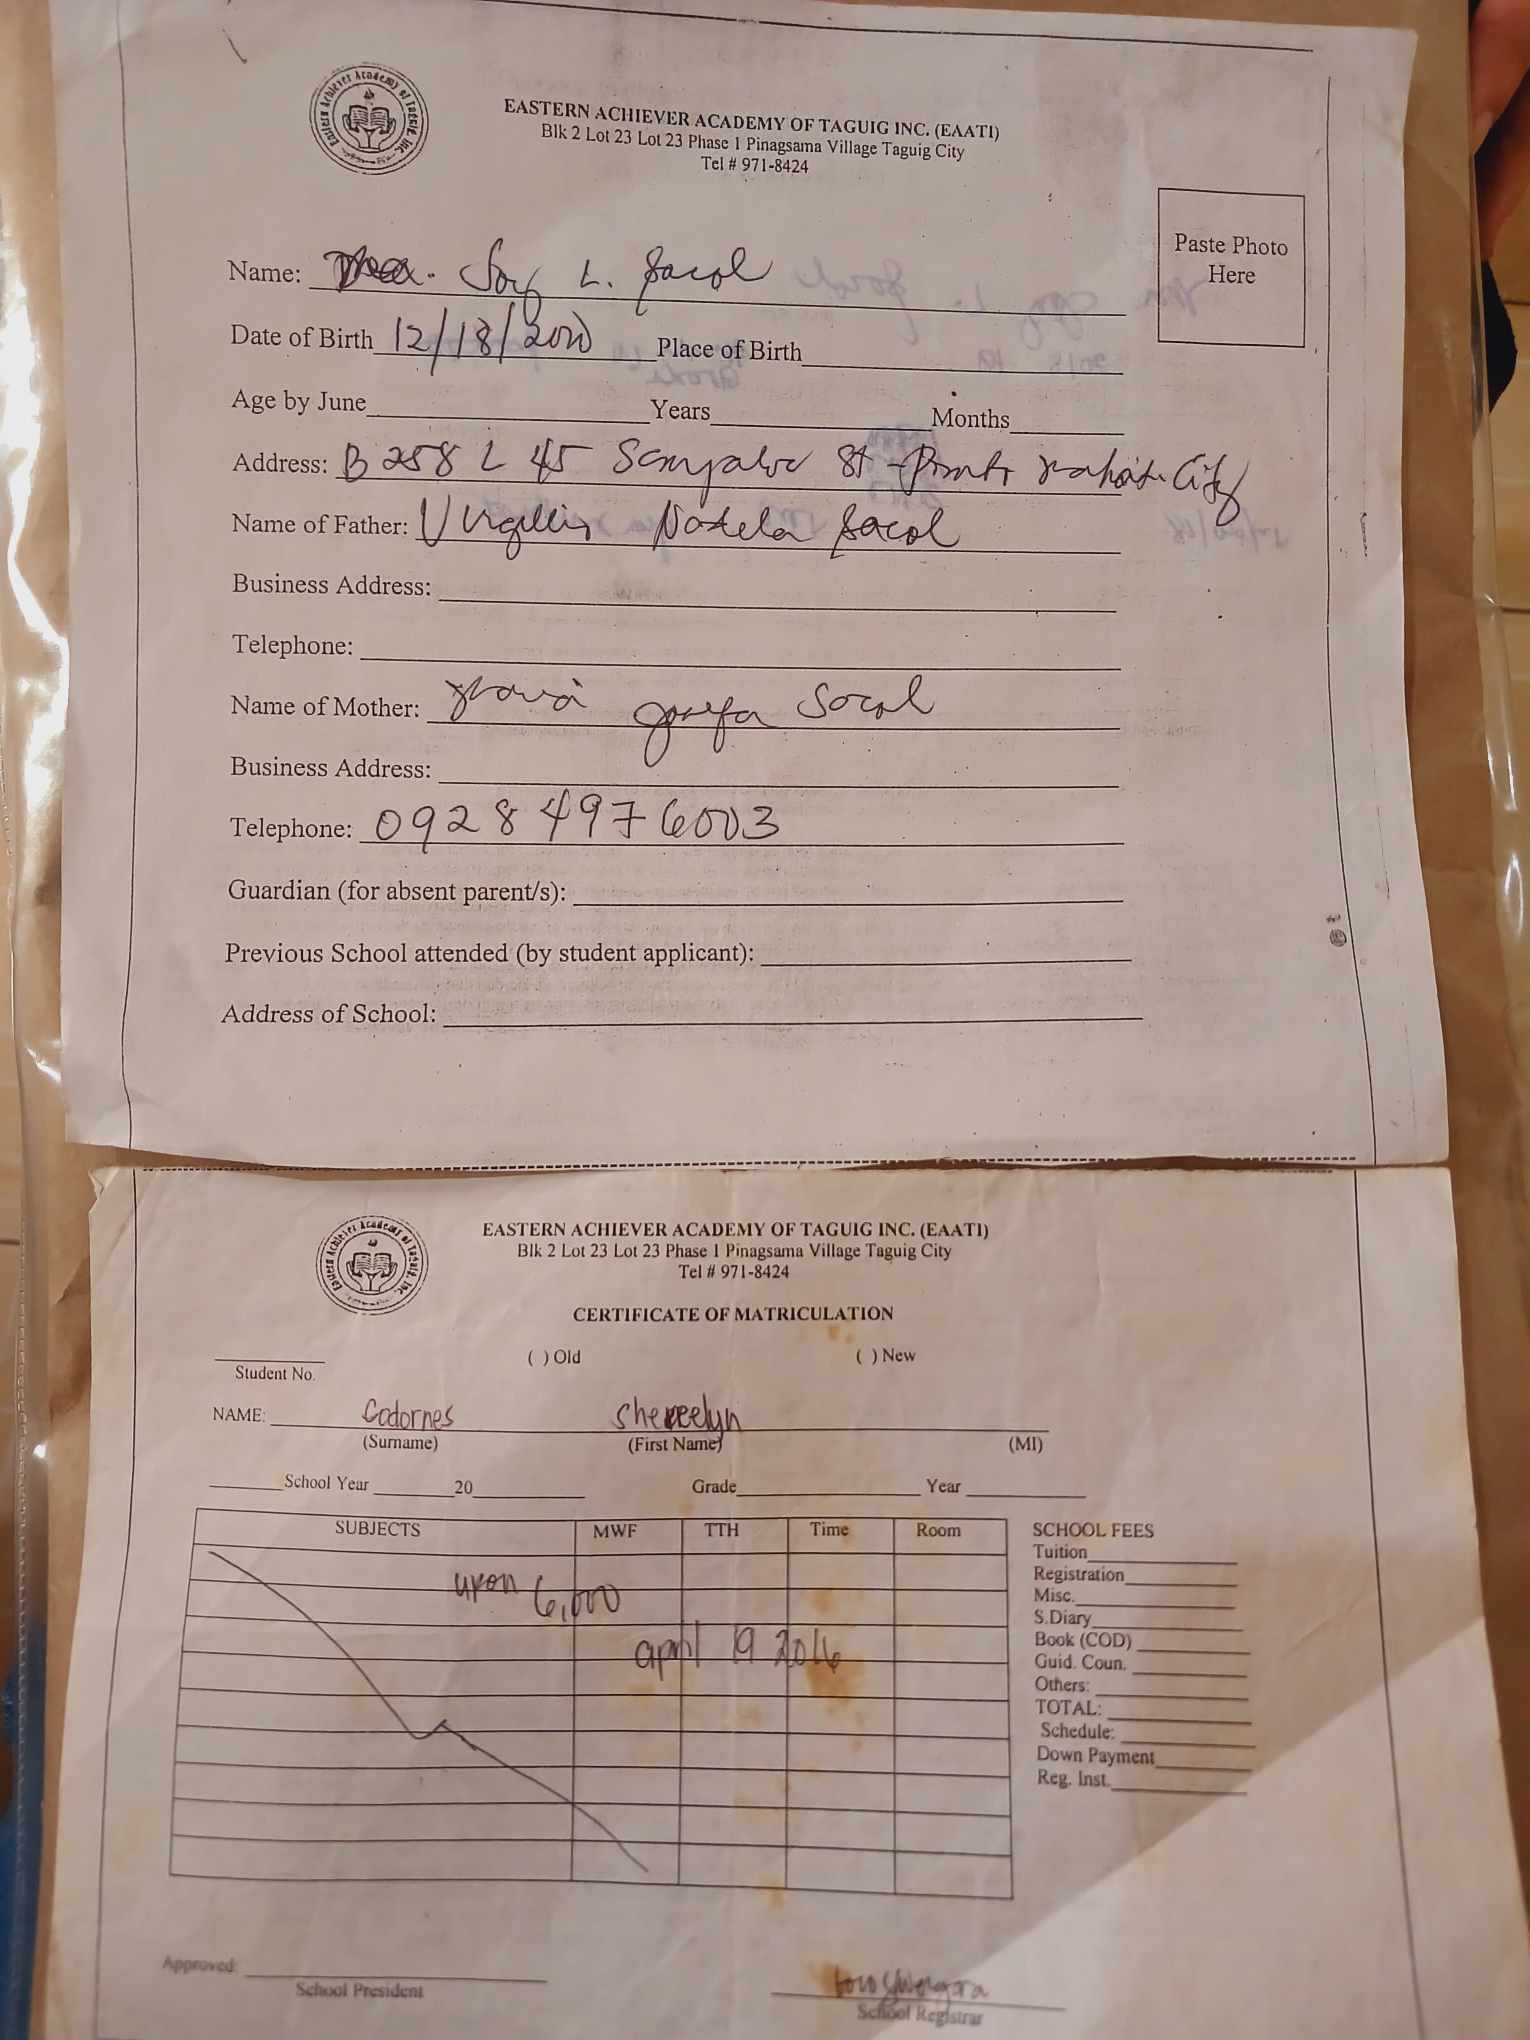 Eastern Achiever Academy of Taguig, Inc.
EASTERN ACHIEVER ACADEMY OF TAGUIG INC. (EAATI)
Blk 2 Lot 23 Lot 23 Phase 1 Pinagsama Village Taguig City
Tel # 971-8424
Paste Photo
Here
Name: L. Sacol
Date of Birth 12/18/2000 Place of Birth
Age by June Years Months
Address: B 258 L 45 St City
Name of Father: Sacol
Business Address:
Telephone:
Name of Mother: Josefa Sacol
Business Address:
Telephone: 09284976003
Guardian (for absent parent/s):
Previous School attended (by student applicant):
Address of School:
Eastern Achiever Academy of Taguig, Inc.
EASTERN ACHIEVER ACADEMY OF TAGUIG INC. (EAATI)
Blk 2 Lot 23 Lot 23 Phase 1 Pinagsama Village Taguig City
Tel # 971-8424
CERTIFICATE OF MATRICULATION
( ) Old ( ) New
Student No.
NAME: Codornes Shereelyn
(Surname) (First Name) (MI)
School Year 20 Grade Year
SUBJECTS MWF TTH Time Room
upon 6,000
april 19 2016
SCHOOL FEES
Tuition
Registration
Misc.
S.Diary
Book (COD)
Guid. Coun.
Others:
TOTAL:
Schedule:
Down Payment
Reg. Inst.
Approved:
School President
School Registrar